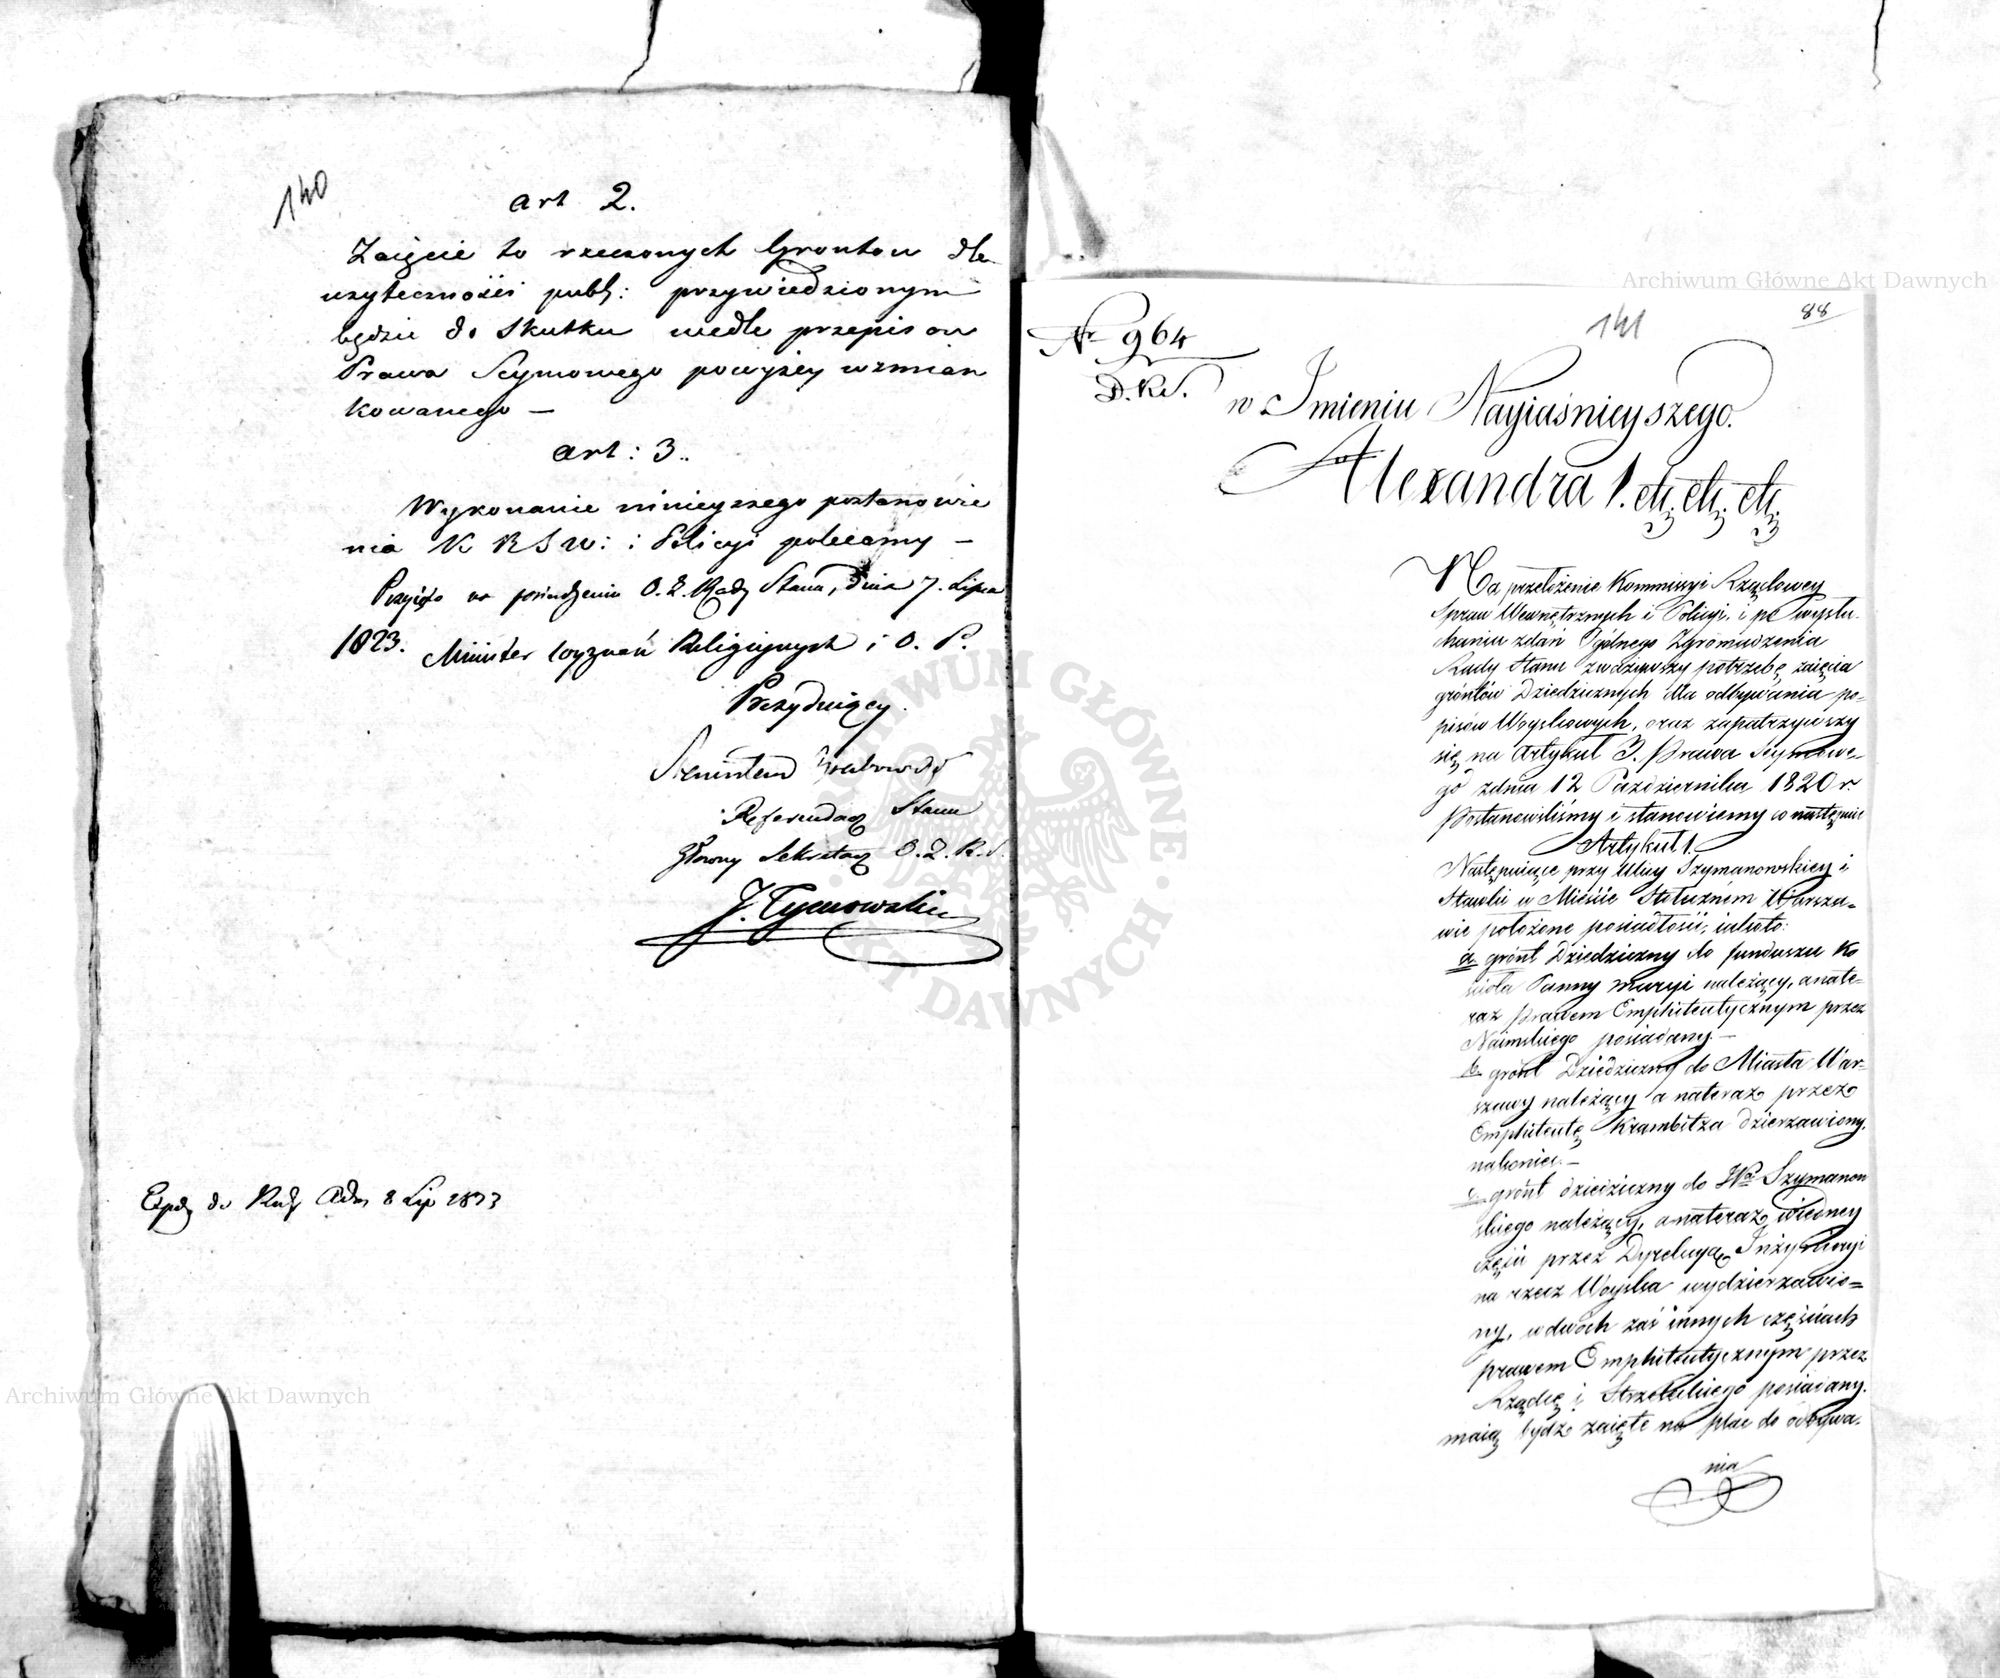 140
art 2.
Zaięcie to rzeczonych Grontow dla
uzyteczności publ: przywiedzionym
będzie do skutku wedle przepisow
Prawa Seymowego powyżey wzmian
kowanego —
art: 3.
Wykonanie ninieyszego postanowie
nia K R S W: i Policyi polecamy —
Przyięto na posiedzeniu O. Z. Rady Stanu, dnia 7. Lipca
1823. Minister Wyznań Religiynych i O. P.
Prezyduiący.
Stanisław Grabowski
Referendarz Stanu
Główny Sekretarz O. Z. R. S.
J. Tymowski
Exped do Rady Adm 8 Lip 1823
Archiwum Główne Akt Dawnych
Archiwum Główne Akt Dawnych
ARCHIWUM GŁÓWNE AKT DAWNYCH
88
141
Nr 964
D.K.S.
w Imieniu Nayiaśnieyszego.
Alexandra I. etc; etc; etc;
Na przełożenie Kommissyi Rządowey
Spraw Wewnętrznych i Policyi, i po wysłu-
chaniu zdań Ogólnego Zgromadzenia
Rady Stanu zważywszy potrzebę zaięcia
gróntów Dziedzicznych dla odbywania po-
pisów Woyskowych, oraz zapatrzywszy
się na Artykuł 3. Prawa Seymowe-
go z dnia 12 Października 1820 r.
Postanowiliśmy i stanowiemy co następuie
Artykuł 1.
Następuiące przy Ulicy Szymanowskiey i
Stawki w Mieście Stołecznem Warsza=
wie położone posiadłości, iakoto:
a. grónt Dziedziczny do funduszu Ko
ścioła Panny Maryi należący, a nate-
raz prawem Emphiteutycznym przez
Naimskiego posiadany. —
b. grónt Dziedziczny do Miasta War-
szawy należący a nateraz przez
Emphiteutę Krambitza dzierzawiony.
nakoniec. —
c. grónt dziedziczny do Wo Szymanow
skiego należący, a nateraz w iedney
części przez Dyrekcyą Inżynieryi
na rzecz Woyska wydzierzawio=
ny, w dwoch zaś innych częściach
prawem Emphiteutycznym przez
Rządcę i Strzeleckiego posiadany.
maią bydź zaięte na plac do odbywa.
nia